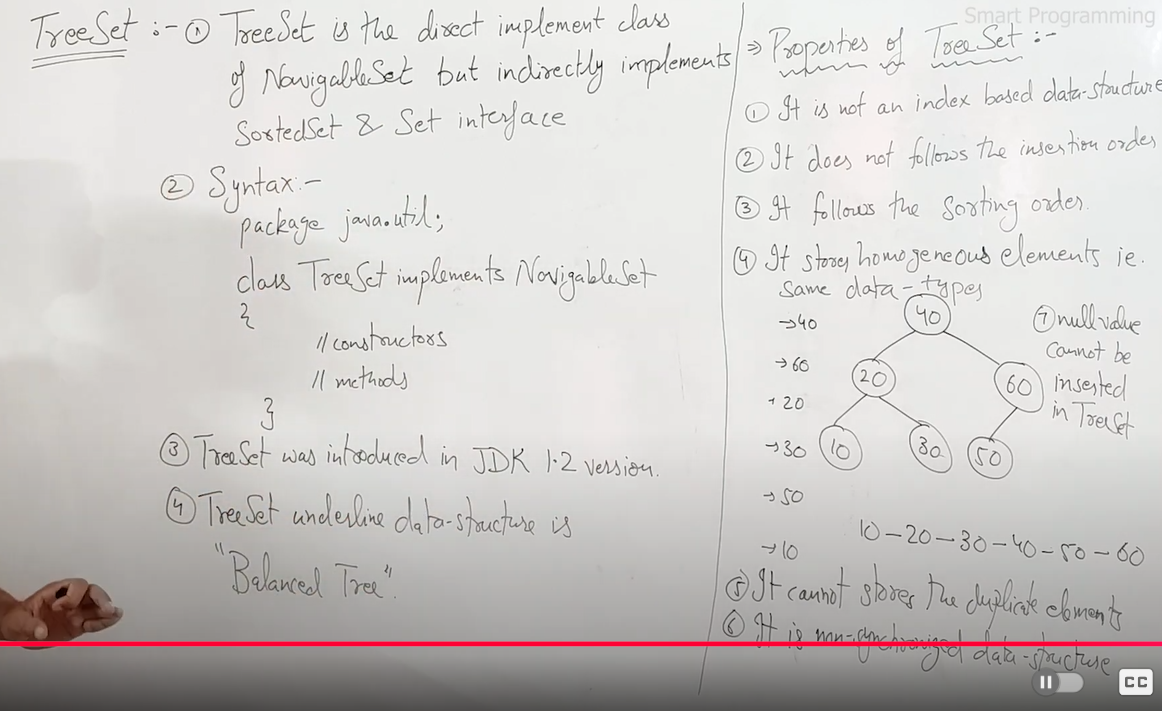 Smart Programming
TreeSet :- ① TreeSet is the direct implement class
of NavigableSet but indirectly implements
SortedSet & Set interface
② Syntax:-
package java.util;
class TreeSet implements NavigableSet
{
// constructors
// methods
}
③ TreeSet was introduced in JDK 1.2 version.
④ TreeSet underline data-structure is
"Balanced Tree".
⇒ Properties of TreeSet :-
① It is not an index based data-structure
② It does not follows the insertion order
③ It follows the sorting order.
④ It stores homogeneous elements ie.
same data-types
→40
→60
→20
→30
→50
→10
40
20 60
10 30 50
10-20-30-40-50-60
⑤ It cannot stores the duplicate elements
⑥ It is non-synchronized data-structure
⑦ null value
cannot be
inserted
in TreeSet
CC